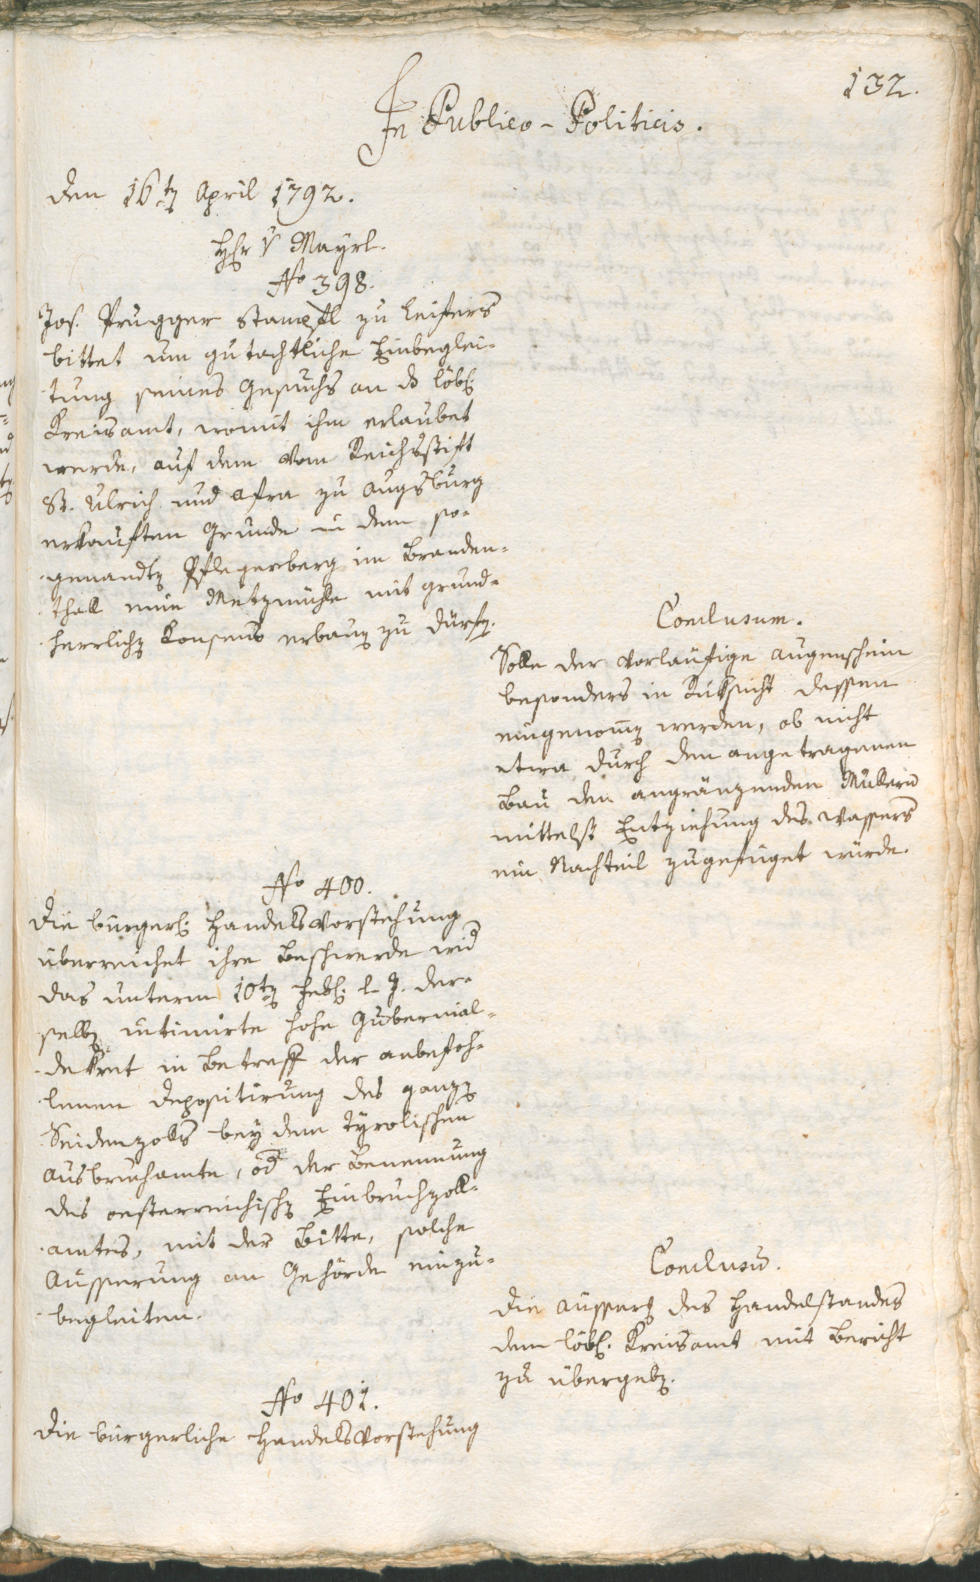 132.
In Publico-Politicis.
den 16t April 1792.
H v Mayrl.
No 398.
Jos. Prugger Stampfl zu Leifers
bittet um gutachtliche Einbeglei-
tung seines Gesuchs an d löbl
Kreisamt, womit ihm erlaubet
werde, auf dem vom Reichsstift
St. Ulrich und Afra zu Augsburg
erkauften Grunde in dem so-
genandt Pflegerberg im Branden-
thall eine Metzmühle mit grund-
herrlich Konsens erbau zu dürf.
Conclusum.
Solle der vorläufige Augenschein
besonders in Rüksicht dessen
eingenom̄ werden, ob nicht
etwa durch den angetragenen
Bau den angränzenden Müllern
mittelst Entziehung des Wassers
ein Nachteil zugefüget würde.
No 400.
Die bürgerl. Handelsvorstehung
überreichet ihre Beschwerde wid
das unterm 10t Feb. l. J. der-
selb intimirte hohe Gubernial-
dekret in Betreff der anbefoh-
lenen Depositirung des ganz
Seidenzolls bey dem tyrolischen
Ausbruchamte, od der Benennung
des oesterreichisch Einbruchzoll-
amtes, mit der Bitte, solche
Äusserung an Gehörde einzu-
begleiten.
Conclusū.
Die Äusserg des Handelstandes
dem löbl. Kreisamt mit Bericht
zu übergeb.
No 401.
Die bürgerliche Handelsvorstehung